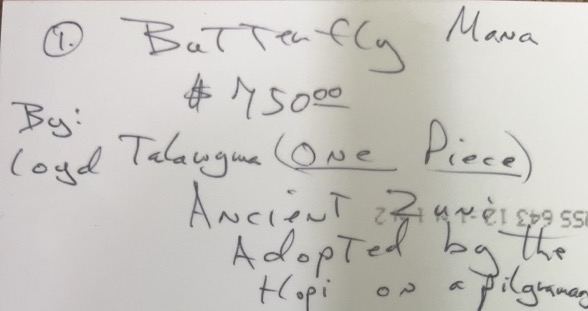 1. Butterfly Mana
$ 750.00
By:
Loyd Talawgma (One Piece)
Ancient Zuni
Adopted by the
Hopi on a pilgramag